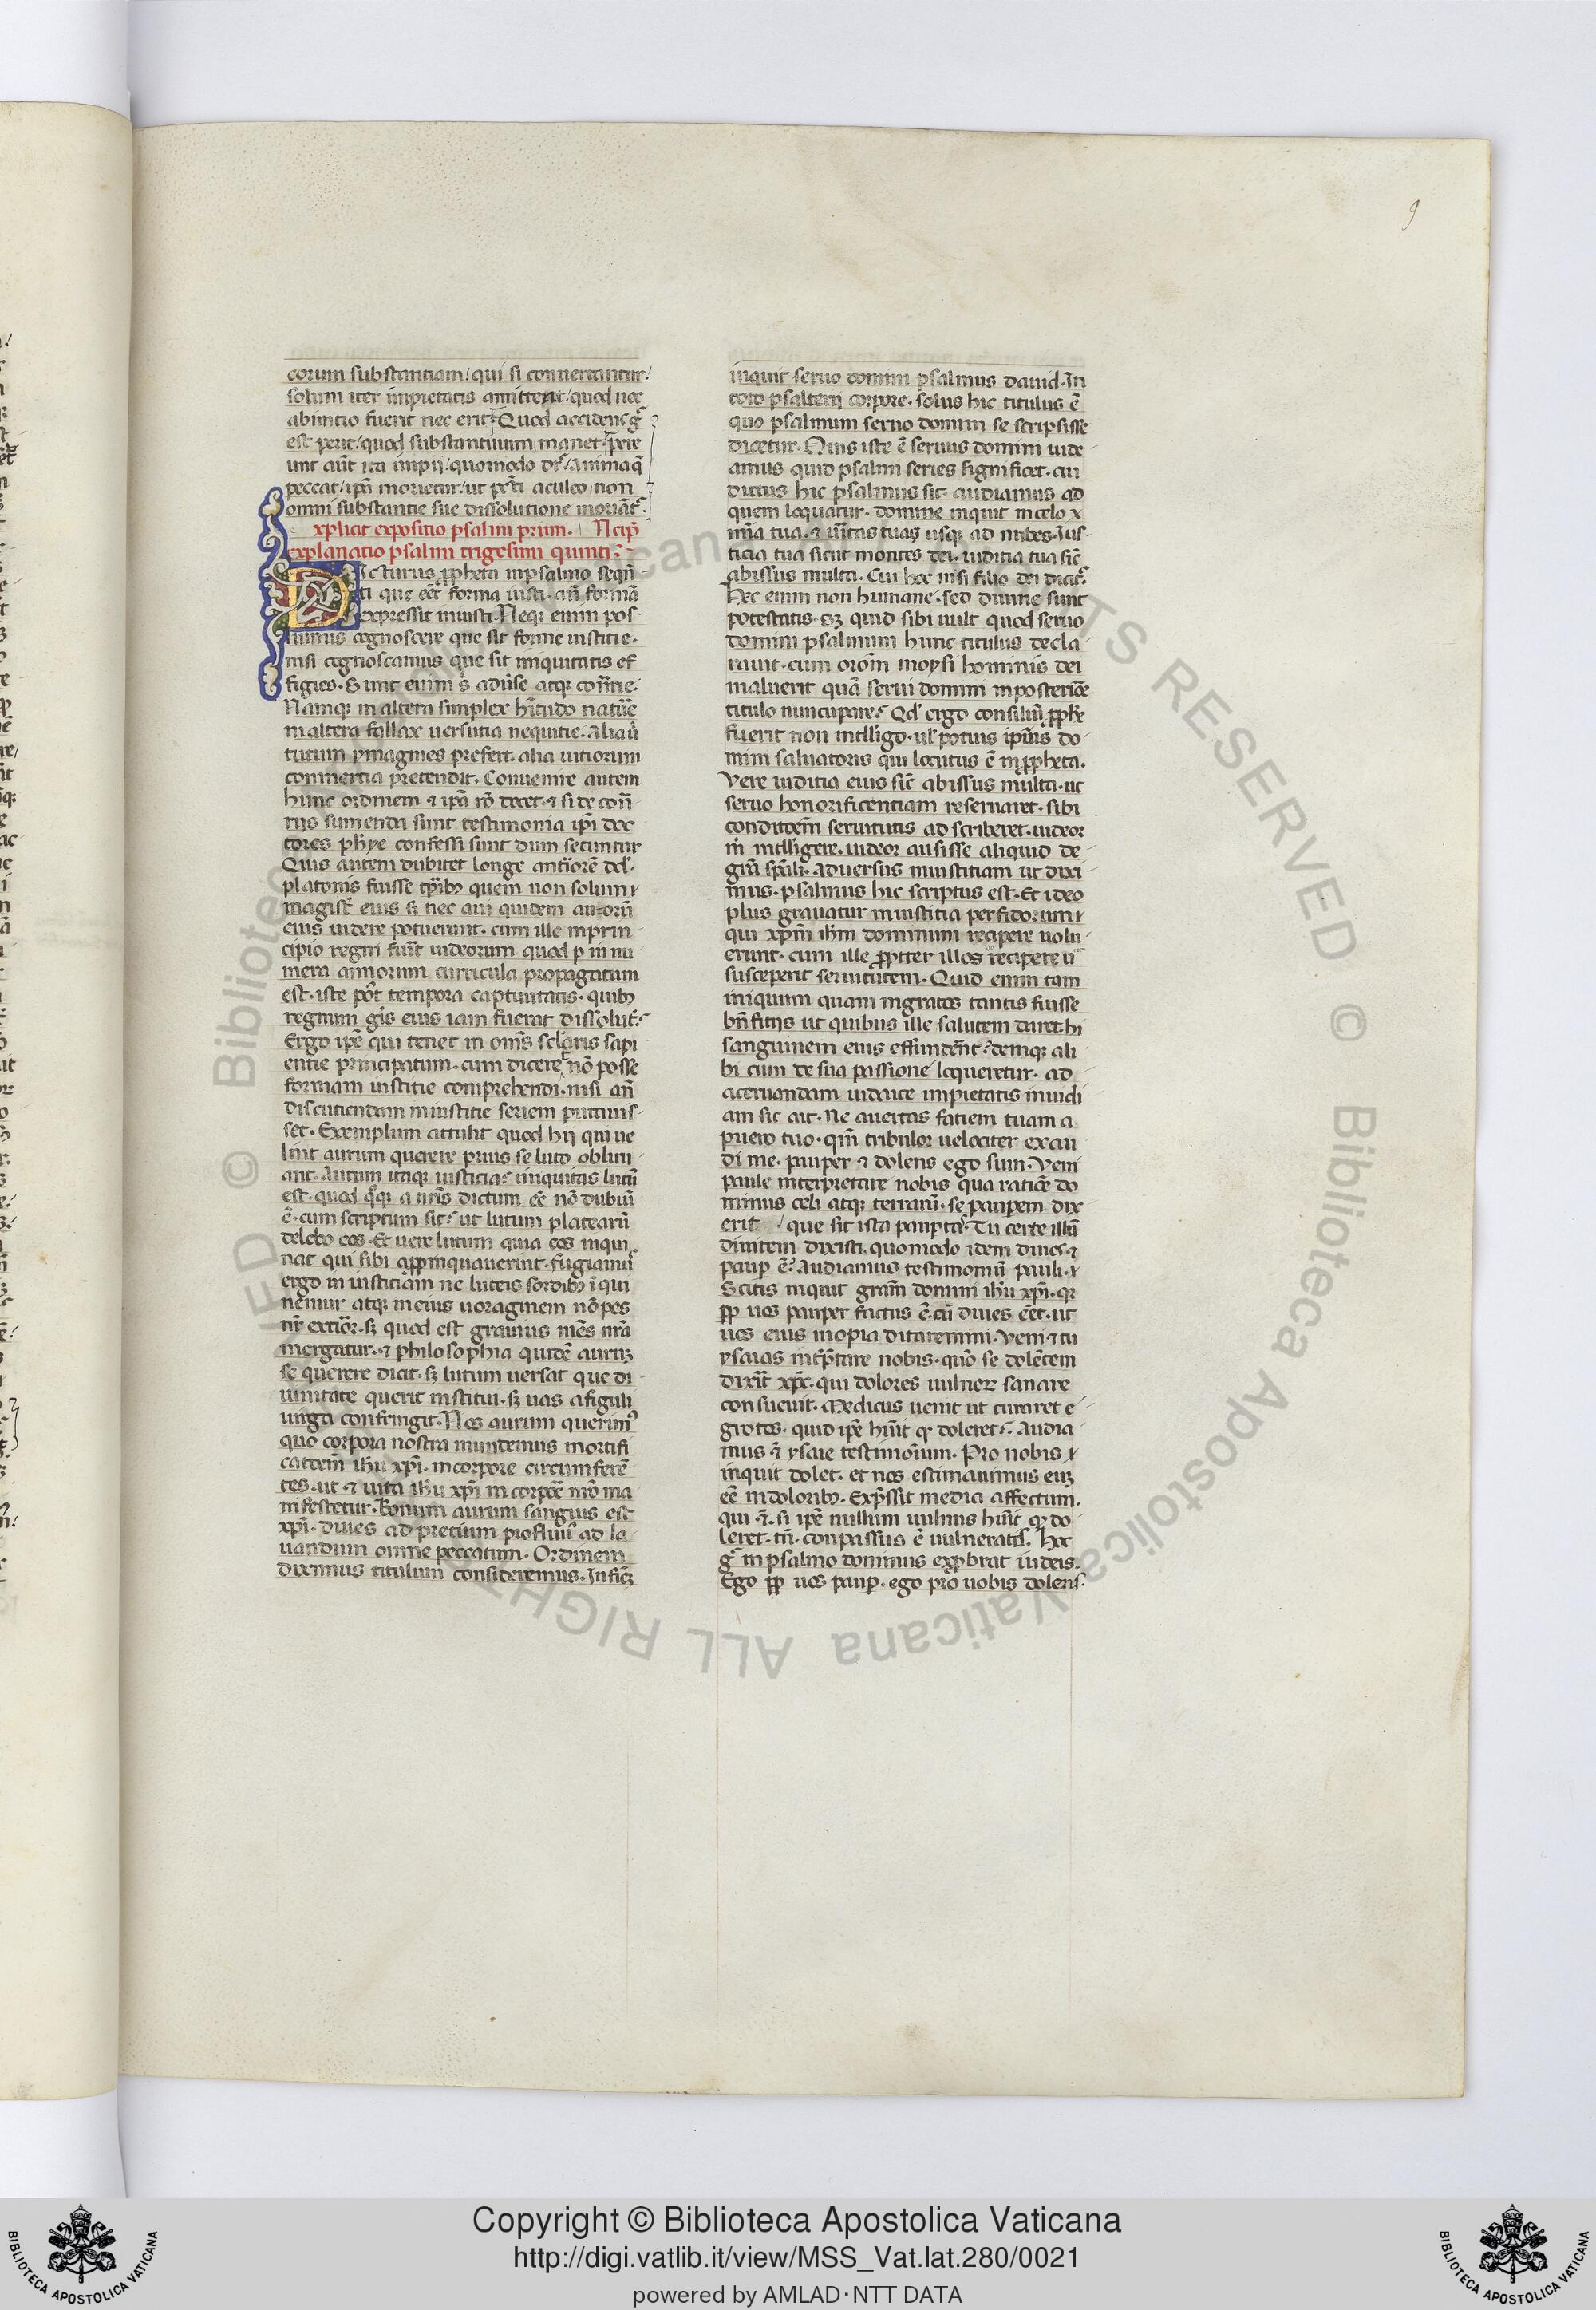 9
eorum substantiam/ qui si conuertantur/
solum iter impietatis amittent/ quod nec
abinitio fuerit nec erit Quod accidens g̃
est perit/ quod substantiuum manet pere
unt aũt ita impij/ quomodo dr̃/ anima q̃
peccat/ ipã morietur/ ut pc̃ti aculeo/ non
omni substantie sue dissolutione moriãt᷑.
xplicit expositio psalmi primi. Ncip̃
explanatio psalmi trigesimi quinti
Dicturus ꝓpheta inpsalmo seqñ
ti que eẽt forma iusti. añ formã
expressit iniusti. Neqꝫ enim pos
sumus cognoscere que sit forme iustitie.
nisi cognoscamus que sit iniquitatis ef
figies. Sunt enim s̉ aduẽse atqꝫ cont̃rie.
Namqꝫ in altera simplex hĩtudo nature
in altera fallax uersutia nequitie. Alia ũ
tutum ymagines prefert. alia uitiorum
commertia pretendit. Conuenire autem
hunc ordinem ⁊ ipã rõ docet. ⁊ si de cont̃
rijs sumenda sunt testimonia ip̃i doc
tores ph̃ye confessi sunt dum secuntur
Quis autem dubitet longe antiorẽ dd̃.
platonis fuisse tp̃ibꝫ quem non solum
magist̃ eius sꝫ nec aui quidem autorũ
eius uidere potuerunt. cum ille inprin
cipio regni fuit iudeorum quod p̲ innu
mera annorum curricula propagatum
est. iste post tempora captiuitatis. quibꝫ
regnum gẽis eius iam fuerat dissolut᷑.
Ergo ip̃e qui tenet in omẽs sc̃laris sapi
entie principatum. cum diceret nõ posse
formam iustitie comprehendi. nisi añ
discutiendam iniustitie seriem putauis
set. Exemplum attulit quod hij qui ue
lint aurum querere prius se luto oblini
ant. Aurum itaqꝫ iusticia. iniquitas lutũ
est. quod qq̃ꝫ a nr̃is dictum eẽ nõ dubiũ
ẽ. cum scriptum sit. ut lutum platearũ
delebo eos. Et uere lutum quia eos inqui
nat qui sibi appinquauerint. fugiamus
ergo iniustitiam ne luteis sordibꝫ ĩqui
nemur atqꝫ in eius uoraginem nõ pes
nr̃ exterior. sꝫ quod est grauius mẽs nr̃a
mergatur. ⁊ philosophia quidẽ aurũ
se querere dicit. sꝫ lutum uersat que di
uinitate querit institui. sꝫ uas afiguli
uirga confringit. Nos aurum querim᷒
quo corpora nostra mundemus mortifi
catõem ih̃u xp̃i. incorpore circumferẽ
tes. ut ⁊ uita ih̃u xp̃i in corpore nr̃o ma
nifestetur. Bonum aurum sanguis est
xp̃i. diues ad pretium profluus ad la
uandum omne peccatum. Ordinem
diximus titulum consideremus. In finẽ
inquit seruo domini psalmus dauid. In
toto psalterij corpore. solus hic titulus ẽ
quo psalmum seruo domini se scripsisse
dicetur. Quis iste ẽ seruus domini uide
amus quid psalmi series significet. cui
dictus hic psalmus sit audiamus ad
quem loquatur. domine inquit in celo
mĩa tua. ⁊ ũitas tuas usqꝫ ad nubes. Ius
ticia tua sicut montes dei. iuditia tua sic̃
abissus multa. Cui hoc nisi filio dei dicit᷑
hec enim non humane. sed diuine sunt
potestatis. Sꝫ quid sibi uult quod seruo
domini psalmum hunc titulus decla
rauit. cum oroñm moysi hominis dei
maluerit quã serui domini inposteriore
titulo nuncupare. Qd̃ ergo consiliũ ꝓphe
fuerit non intelligo. ul̃ potius ip̃ius do
mini saluatoris qui locutus ẽ inꝓpheta.
Vere iuditia eius sic̃ abissus multa. ut
seruo honorificentiam reseruaret. sibi
conditõem seruitutis ad scriberet. uideor
m̃ intelligere. uideor ausisse aliquid de
gr̃a sp̃ali. aduersus iniustitiam ut dixi
mus. psalmus hic scriptus est. Et ideo
plus grauatur iniustitia perfidorum
qui xp̃m ih̃m dominum recipere nolu
erunt. cum ille ꝓpter illos recipere
susceperit seruitutem. Quid enim tam
iniquum quam ingratos tantis fuisse
bñfitijs ut quibus ille salutem daret. hi
sanguinem eius effunderent. deniqꝫ ali
bi cum de sua passione loqueretur. ad
aceruandam iudaice impietatis inuidi
am sic ait. Ne auertas fatiem tuam a
puero tuo. qm̃ tribulor uelociter exau
di me. pauper ⁊ dolens ego sum. Veni
paule interpretare nobis qua ratiõe do
minus celi atqꝫ terrarũ. se paupem dix
erit / que sit ista pauptas. Tu certe illũ
diuitem dixisti. quomodo idem diues. ⁊
paup ẽ. Audiamus testimoniũ pauli.
Scitis inquit gram̃ domini ih̃u xp̃i. qꝛ
ꝓp uos pauper factus ẽ. cũ diues eẽt. ut
uos eius inopia ditaremini. Veni ⁊ tu
ysaias int̃p̃tare nobis. quõ se dolẽtem
dixit xp̃c. qui dolores uulnera sanare
consueuit. Medicus uenit ut curaret e
grotos. quid ip̃e hũit qꝫ doleret. Audia
mus ⁊ ysaie testimonium. Pro nobis
inquit dolet. et nos estimauimus eum
eẽ indoloribꝫ. Exp̃ssit medici affectum.
qui ⁊ si ip̃e nullum uulnus hũit qꝫ do
leret. tñ. conpassus ẽ uulneratis. Hoc
g̃ in psalmo dominus exprobrat iudeis.
Ego ꝓp uos paup. ego pro uobis dolens.
Copyright © Biblioteca Apostolica Vaticana
http://digi.vatlib.it/view/MSS_Vat.lat.280/0021
powered by AMLAD·NTT DATA